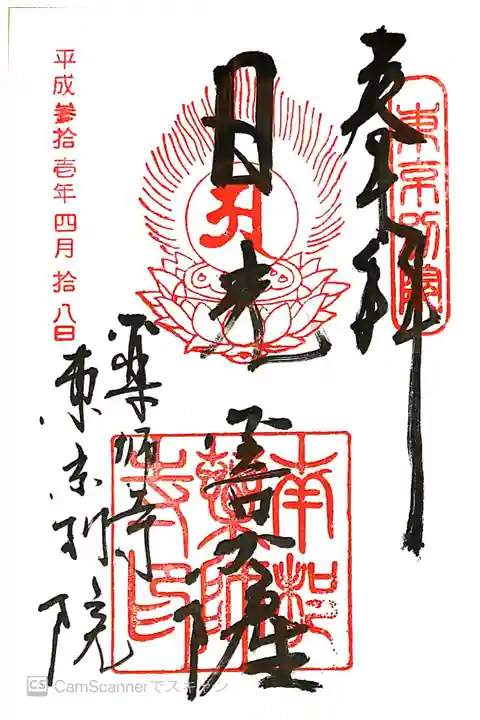 奉拝
東京別院
日光
菩薩
南都
薬師
寺印
薬師寺
東京別院
平成参拾壱年四月拾八日
CS CamScannerでスキャン